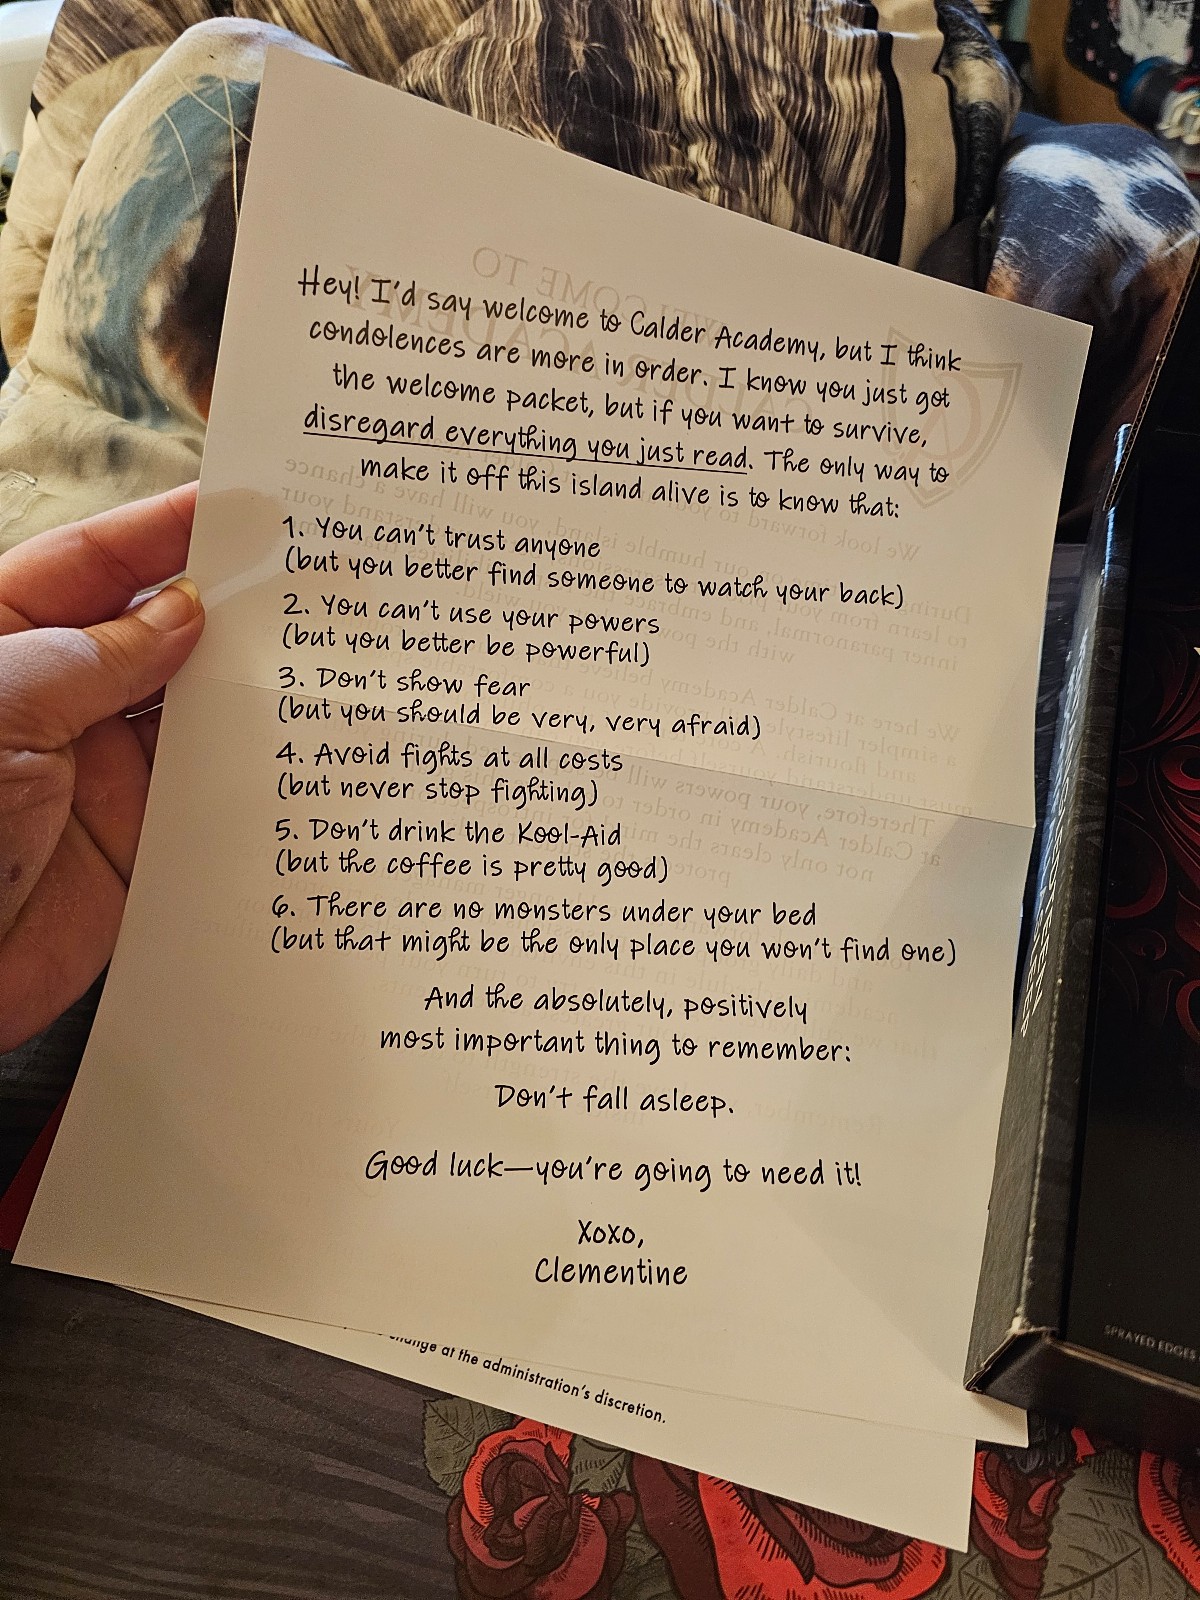 Hey! I'd say welcome to Calder Academy, but I think
condolences are more in order. I know you just got
the welcome packet, but if you want to survive,
disregard everything you just read. The only way to
make it off this island alive is to know that:
1. You can't trust anyone
(but you better find someone to watch your back)
2. You can't use your powers
(but you better be powerful)
3. Don't show fear
(but you should be very, very afraid)
4. Avoid fights at all costs
(but never stop fighting)
5. Don't drink the Kool-Aid
(but the coffee is pretty good)
6. There are no monsters under your bed
(but that might be the only place you won't find one)
And the absolutely, positively
most important thing to remember:
Don't fall asleep.
Good luck—you're going to need it!
Xoxo,
Clementine
change at the administration's discretion.
SPRAYED EDGES